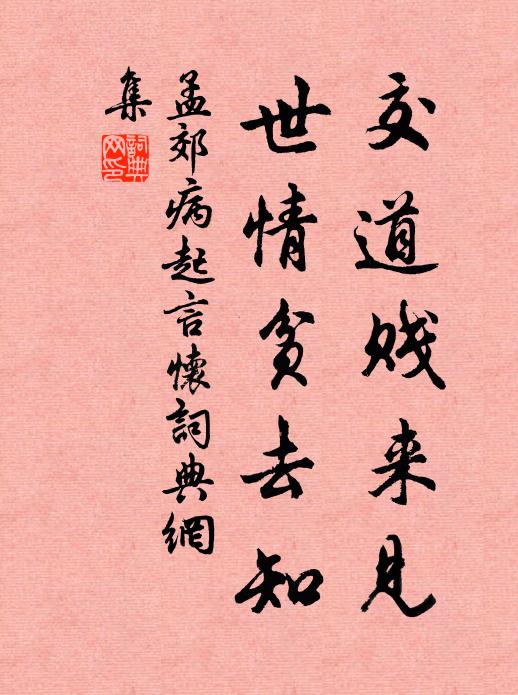 交道贱来见
世情贫去知
孟郊病起言懷詞典網
集
詞典
网印